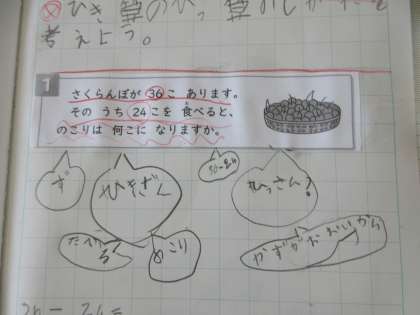 ひき算のひっ算のしかたを
考えよう。
1
さくらんぼが 36こ あります。
その うち 24こを 食べると、
のこりは 何こに なりますか。
ず
ひきざん
36-24
ひっさん?
たべ
ると
のこり
かずがおおいから